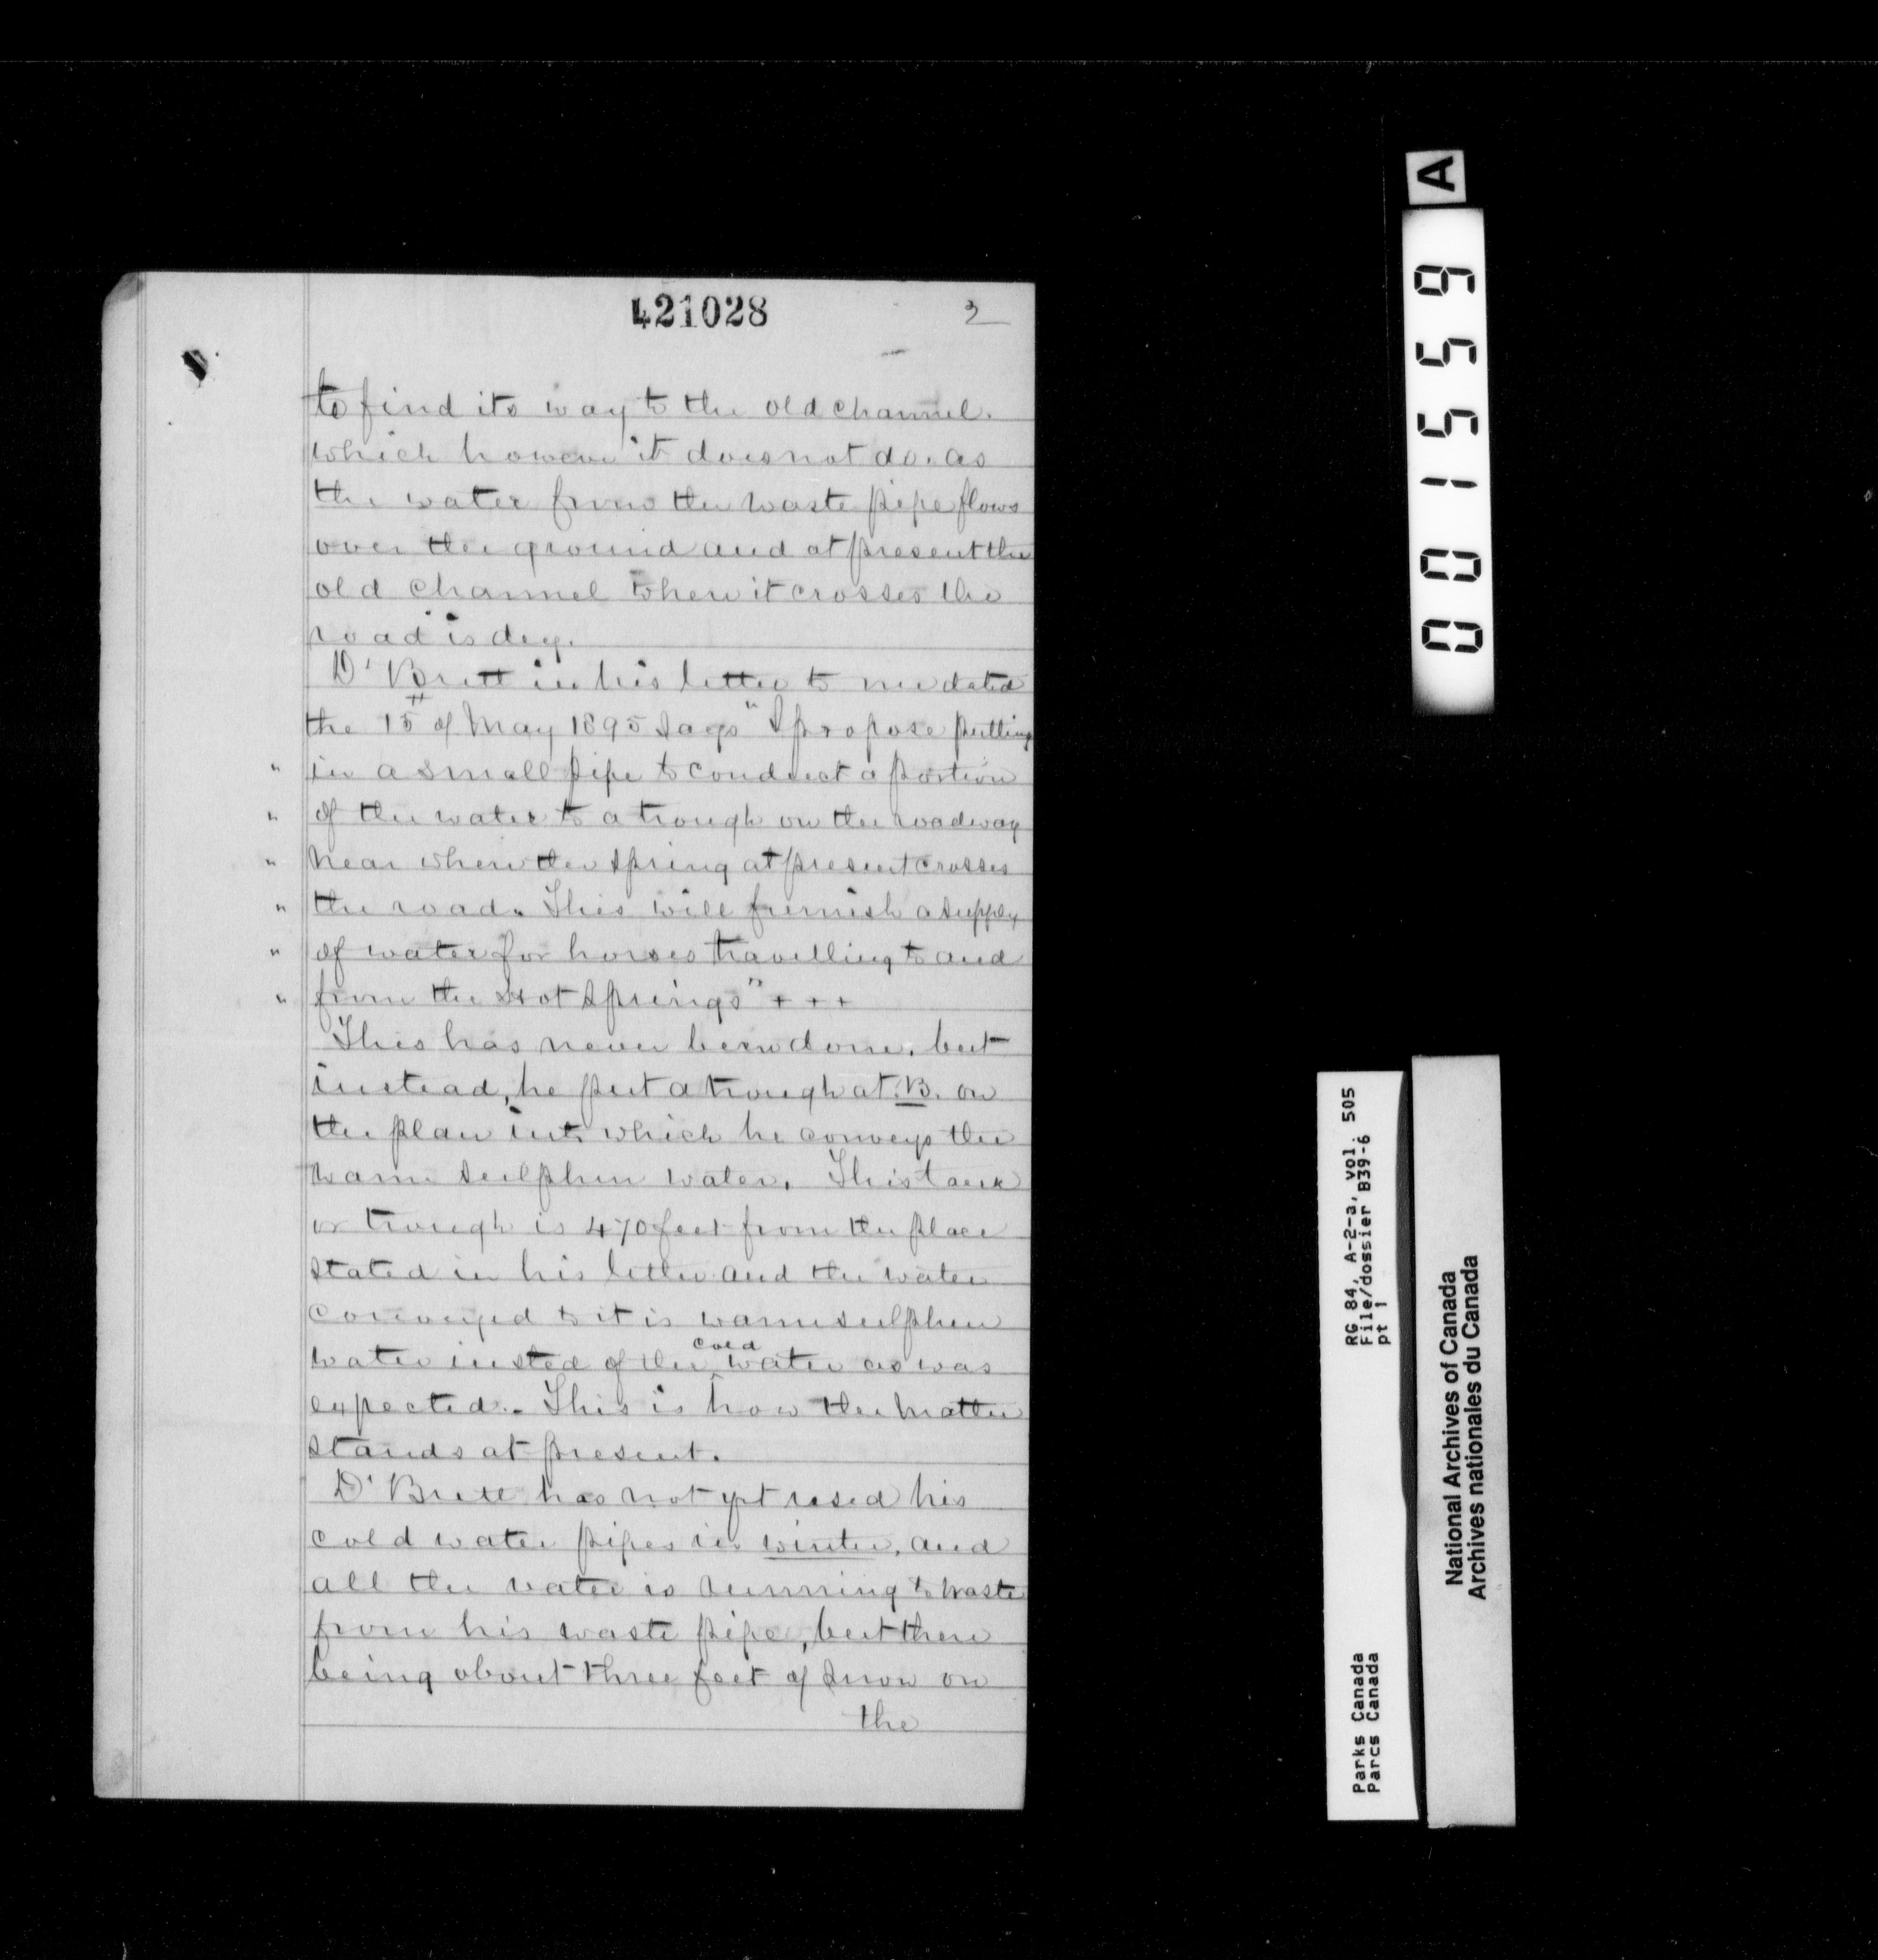 421028
2
to find its way to the old channel.
which however it does not do. as
the water from the waste pipe flows
over the ground and at present the
old channel where it crosses the
road is dry.
Dr Brett in his letter to me dated
the 15th of May 1895 says "I propose putting
" in a small pipe to conduct a portion
" of the water to a trough on the roadway
" near where the spring at present crosses
" the road. This will furnish a supply
" of water for horses travelling to and
" from the Hot Springs" + + +
This has never been done. but
instead, he put a trough at B. on
the plan into which he conveys the
warm sulphur water. This tank
or trough is 470 feet from the place
stated in his letter and the water
conveyed to it is warm sulphur
water insted of the cold water as was
expected. This is how the matter
stands at present.
Dr Brett has not yet used his
cold water pipes in winter, and
all the water is running to waste
from his waste pipe, but there
being about three feet of snow on
the
A
001559
RG 84, A-2-a, vol. 505
File/dossier B39-6
pt 1
Parks Canada
Parcs Canada
National Archives of Canada
Archives nationales du Canada